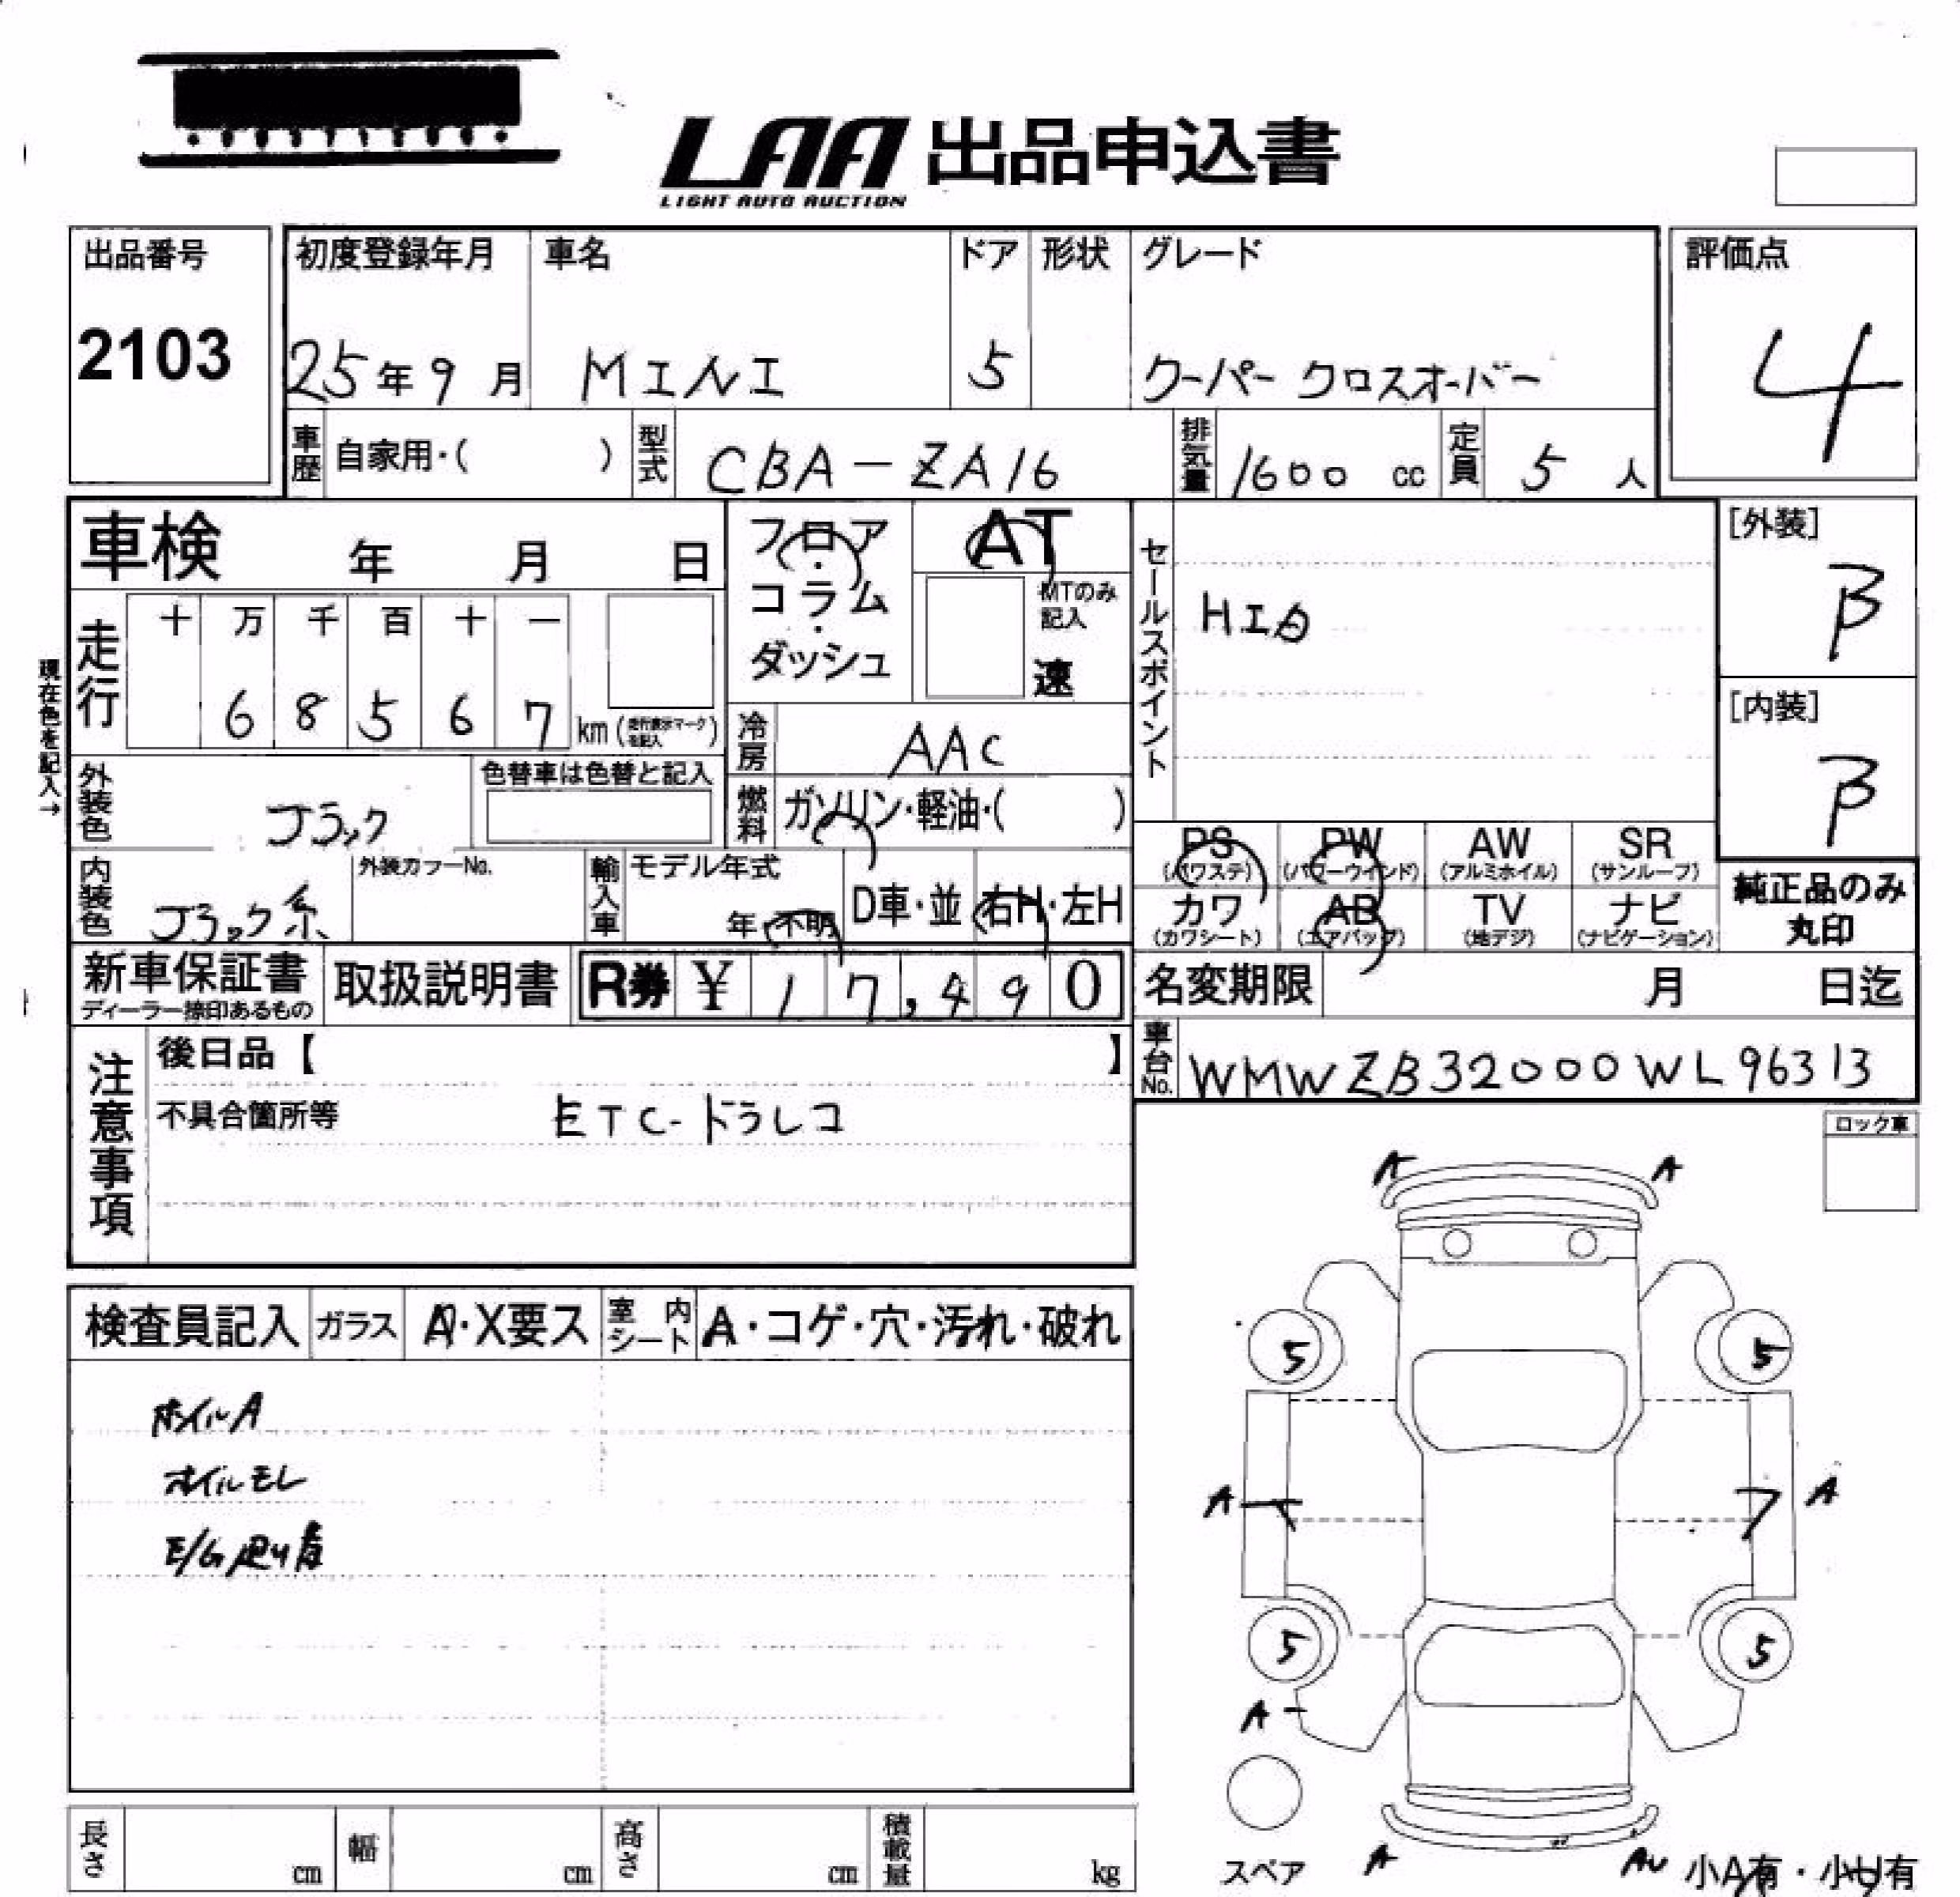 LAA 出品申込書
LIGHT AUTO AUCTION
出品番号
2103
初度登録年月 車名 ドア 形状 グレード
25年9月 MINI 5 クーパー クロスオーバー
評価点
4
車歴 自家用・( ) 型式 CBA-ZA16 排気量 1600 cc 定員 5 人
車検 年 月 日
フロア・コラム・ダッシュ
AT
MTのみ記入
速
セールスポイント
HID
[外装]
B
[内装]
B
現在色を記入→
走行 十 万 千 百 十 一
6 8 5 6 7 km (走行表示マークを記入)
冷房 AAC
外装色 ブラック 色替車は色替と記入
燃料 ガソリン・軽油・( )
内装色 ブラック系 外装カラーNo.
輸入車 モデル年式 年 不明 D車・並 右H・左H
PS (パワステ) PW (パワーウインド) AW (アルミホイル) SR (サンルーフ)
カワ (カワシート) AB (エアバッグ) TV (地デジ) ナビ (ナビゲーション)
純正品のみ丸印
新車保証書 ディーラー捺印あるもの 取扱説明書 R券 ¥ 17,490
名変期限 月 日迄
車台No. WMWZB32000WL96313
注意事項
後日品【 】
不具合箇所等 ETC・ドラレコ
ロック車
検査員記入 ガラス A・X要ス 室内シート A・コゲ・穴・汚れ・破れ
ホイルA
オイルモレ
A A
5 5
A A
5 5
A
スペア
A AU 小A有・小U有
長さ cm 幅 cm 高さ cm 積載量 kg